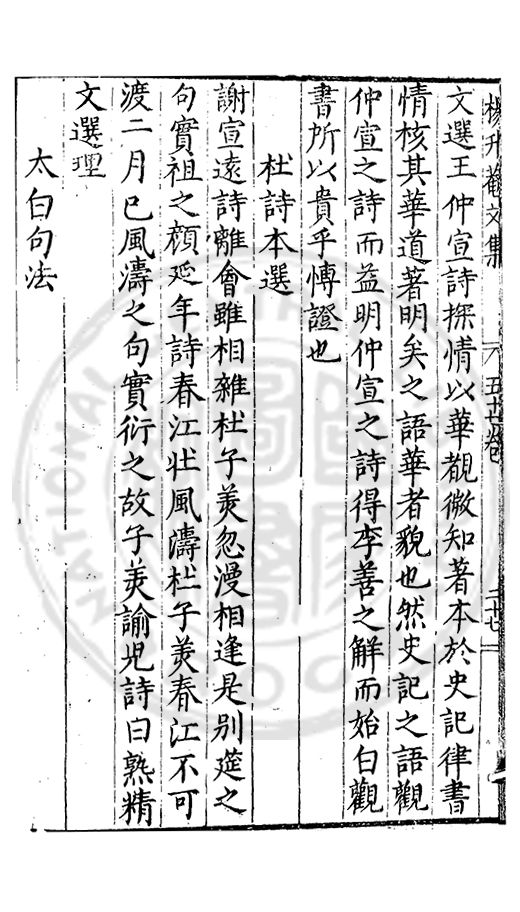 楊升菴文集 五十六卷 二十七
文選王仲宣詩探情以華覩微知著本於史記律書
情核其華道著明矣之語華者貌也然史記之語觀
仲宣之詩而益明仲宣之詩得李善之解而始白觀
書所以貴乎愽證也
杜詩本選
謝宣遠詩離會雖相雜杜子羙忽漫相逢是別筵之
句實祖之顔延年詩春江壮風濤杜子羙春江不可
渡二月已風濤之句實衍之故子羙諭児詩曰熟精
文選理
太白句法
NATIONAL